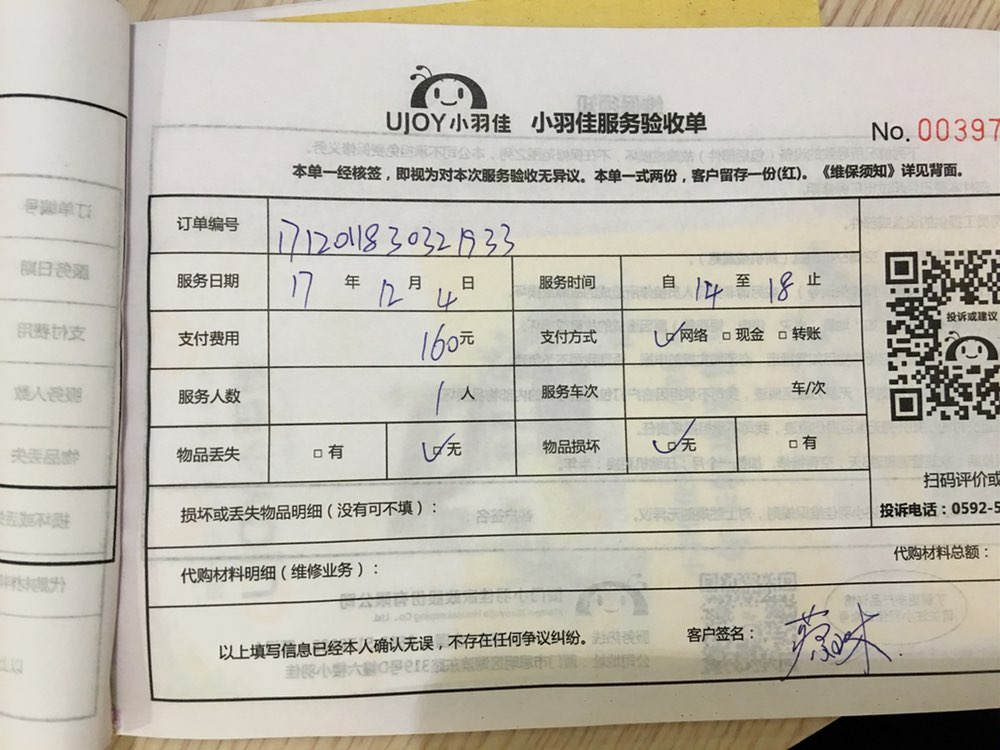 UJOY小羽佳 小羽佳服务验收单
No. 00397
本单一经核签，即视为对本次服务验收无异议。本单一式两份，客户留存一份(红)。《维保须知》详见背面。
订单编号 1712011830321933
服务日期 17 年 12 月 4 日 服务时间 自 14 至 18 止
支付费用 160元 支付方式 网络 现金 转账
投诉或建议
服务人数 1 人 服务车次 车/次
物品丢失 有 无 物品损坏 无 有
扫码评价或
损坏或丢失物品明细（没有可不填）：
投诉电话：0592-5
代购材料总额：
代购材料明细（维修业务）：
以上填写信息已经本人确认无误，不存在任何争议纠纷。 客户签名：